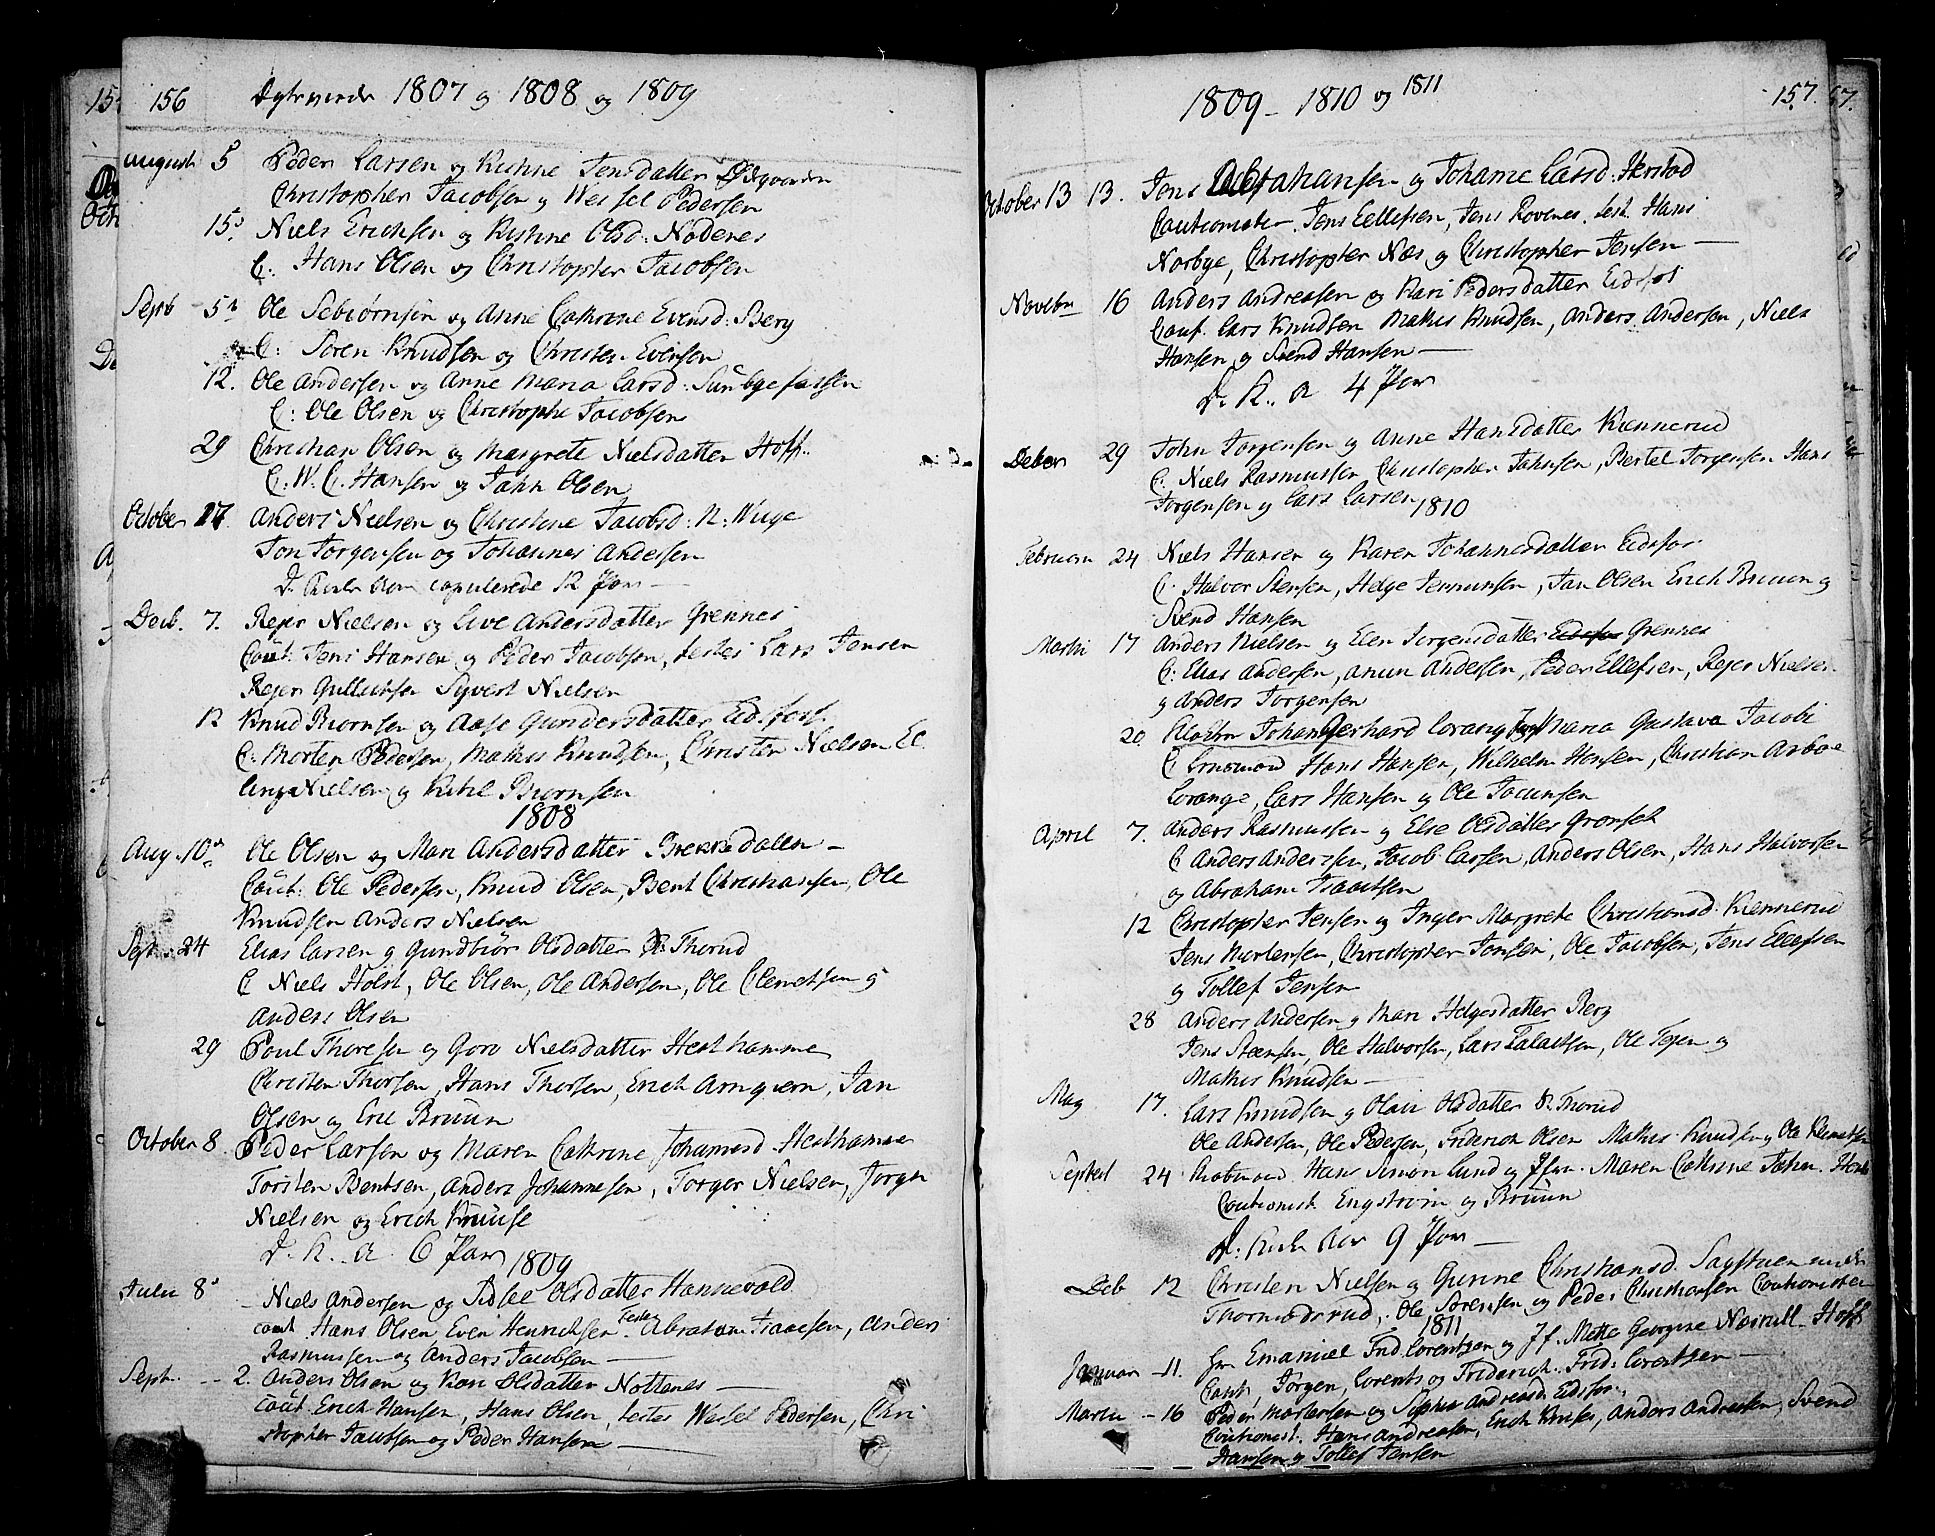 156 1807 og 1808 og 1809
August 5 Peder Larsen og Kistine Jensdatter Ødegaarden
Christopher Jacobsen og Wessel Pedersen
15 Niels Erichsen og Kistine Olsd: Nødenes
C: Hans Olsen og Christopher Jacobsen
Septb 5 Ole Sebiørnsen og Anne Cathrine Evensd: Berg
C: Søren Knudsen og Christen Evensen
12. Ole Andersen og Anne Maria Larsd: Sundbyefossen
C: Ole Olsen og Christophe Jacobsen
29 Christian Olsen og Margrete Nielsdatter Hoff.
C: W. C. Hansen og Jahn Olsen
October 17. Anders Nielsen og Christine Jacobsd: N: Wiige
Jon Jorgensen og Johannes Andersen
copulerede 12 Par
Decb. 7. Rejer Nielsen og Live Andersdatter Grennes
Caut: Jens Hansen og Peder Jacobsen, testes Lars Jensen
Rejer Gulluchsen Syvert Nielsen
12 Knud Biornsen og Aase Gundersdatter Eidsfoss
C: Morten Pedersen, Mathis Knudsen, Christen Nielsen El
ling Nielsen og Kittel Biornsen
1808
Aug. 10 Ole Olsen og Mari Andersdatter
Caut: Ole Pedersen, Knud Olsen, Bent Christiansen, Ole
Knudsen Anders Nielsen
Sept. 24 Elias Larsen og Gundbiør Olsdatter Thorud
C Niels Holst, Ole Olsen, Ole Andersen, Ole Clemetsen og
Anders Olsen
29 Poul Thoresen og Goro Nielsdatter Hesthammer
Christen Thorsen, Hans Thorsen, Erich Arnqvern, Jan
Olsen og Eric Bruun
October 8. Peder Larsen og Maren Cathrine Johannesd. Hesthammer
Torsten Bentsen, Anders Johannesen, Torger Nielsen, Jorgen
Nielsen og Erich Knuse
D. K. A. 6 Par
1809
Julii 8 Niels Andersen og Sidsel Olsdatter Hannevold
caut Hans Olsen Even Henrichsen Testes Abraham Isaacsen, Anders
Rasmussen og Anders Jacobsen
Sept. 2. Anders Olsen og Kari Olsdatter Nottenes
caut Erich Hansen, Hans Olsen, testes Wessel Pedersen, Chri
stopher Jacobsen og Peder Hansen
1809 - 1810 og 1811 157.
October 13 13. Jens Abrahansen og Johanne Larsd: Herstad
Cautionister Jens Eellefsen, Jens Rovenes. test. Hans
Norbye, Christopher Næs og Christopher Jensen
Novebr 16 Anders Andreasen og Kari Pedersdatter Eidsfos
Caut. Lars Knudsen Mathis Knudsen, Anders Andersen, Niels
Hansen og Svend Hansen
D. K. A 4 Par
Deber 29 John Jorgensen og Anne Hansdatter Kiennerud
C. Niels Rasmussen Christopher Jahnsen, Bertel Jorgensen Hans
Jorgensen og Lars Larsen
1810
Februari 24 Niels Hansen og Karen Johannesdatter Eidsfos
C: Halvor Stensen, Helge Jermunsen, Jan Olsen Erich Bruun og
Svend Hansen
Martii 17 Anders Nielsen og Elen Jorgensdatter Eidsfos Grennes
C: Elias Andersen, Amun Andersen, Peder Ellefsen, Rejer Nielsen
og Anders Jorgensen
20 Johan Gerhard Lorang Maria Gustava Jacobi
C Hans Hansen, Wilhelm Hansen, Christian Arboe
Lorange, Lars Hansen og Ole Jacunsen
April 7. Anders Rasmussen og Else Olsdatter Gronset
C Anders Andersen, Jacob Larsen, Anders Olsen, Hans Halvorsen
og Abraham Isaacsen
12 Christopher Jensen og Inger Margrete Christiansd. Kiennerud
Jens Mortensen, Christopher Jonsen, Ole Jacobsen, Jens Ellefsen
og Tollef Jensen
28 Anders Andersen og Mari Helgesdatter Berg
Jens Steensen, Ole Halvorsen, Lars Falactsen, Ole Tejen og
Mathis Knudsen
May 17. Lars Knudsen og Olaug Olsdatter Thorud
Ole Andersen, Ole Pedersen, Friderich Olsen Mathis Knudsen og Ole Klemetsen
Septed 24 Hans Simon Lund og Maren Cathrine Jahn
Cautionist. Engstrøm og Bruun
9 Par
Deb 12 Christen Nielsen og Gunne Christiansd. Sagstuen under
Thornædsrud, Ole Sorensen og Peder Christiansen Cautionister
1811
Januar 11. Hr Emanuel Frid. Lorentzen og Jf. Mette Georgine Neirull Hoff
Caut, Jørgen, Lorents og Friderich Frid: Lorentzen
Martii 16 Peder Mortensen og Sophie Andreasd. Eidsfos,
Cautionist. Hans Andreasen, Erich Knuse, Anders Andreasen, Svend
Hansen og Tollef Jensen